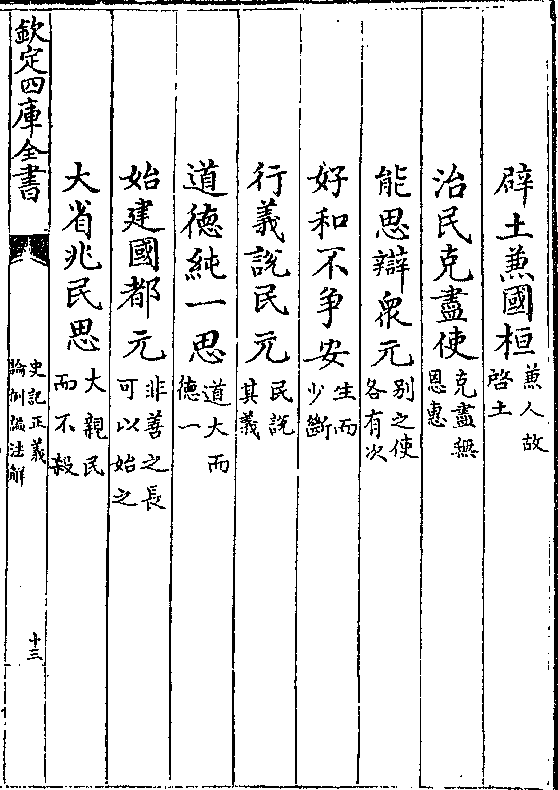 辟土兼國桓兼人故啓土
治民克盡使克盡無恩惠
能思辯衆元别之使各有次
好和不争安生而少斷
行義說民元民說其義
道德純一思道大而德一
始建國都元非善之長可以始之
大省兆民思大親民而不殺
欽定四庫全書
史記正義
論例諡法解
十三